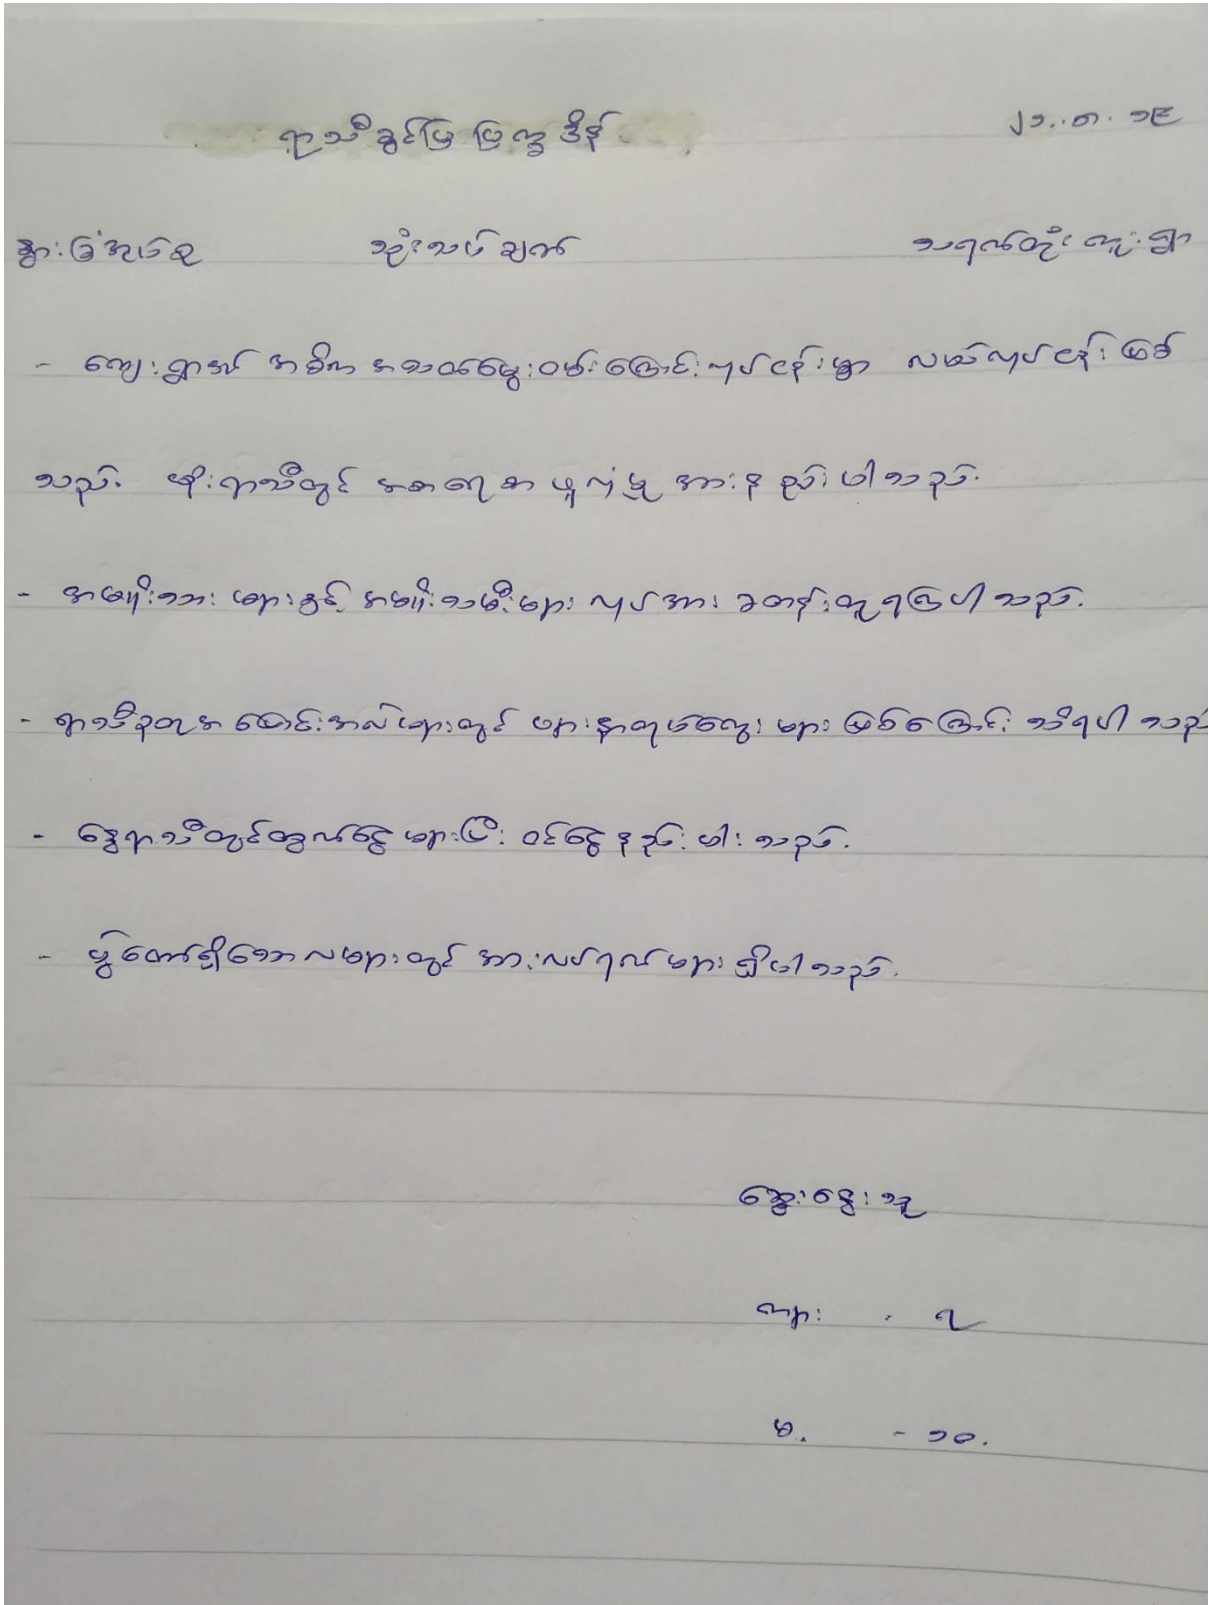 ရာသီခွင်ပြ ပြက္ခဒိန် ၂၁..၈.၁၉
နွားခြံအုပ်စု သုံးသပ်ချက် သရက်တုံးကူးရွာ
- ကျေးရွာ၏ အဓိက အသက်မွေးဝမ်းကြောင်းလုပ်ငန်းမှာ လယ်လုပ်ငန်း ဖြစ်
သည်. မိုးရာသီတွင် အစာရေစာ ဖူလုံမှု အားနည်းပါသည်.
- အမျိုးသားများနှင့် အမျိုးသမီးများ လုပ်အားခတန်းတူရကြပါသည်.
- ရာသီဥတုအပြောင်းအလဲများတွင် ဖျားနာတုပ်ကွေးများ ဖြစ်ကြောင်း သိရပါသည်
- နွေရာသီတွင်ထွက်ငွေများပြီး ဝင်ငွေနည်းပါးသည်.
- ပွဲတော်ရှိသောလများတွင် အားလပ်ရက်များ ရှိပါသည်.
ဆွေးနွေးသူ
ကျား - ၃
မ. - ၁၀.